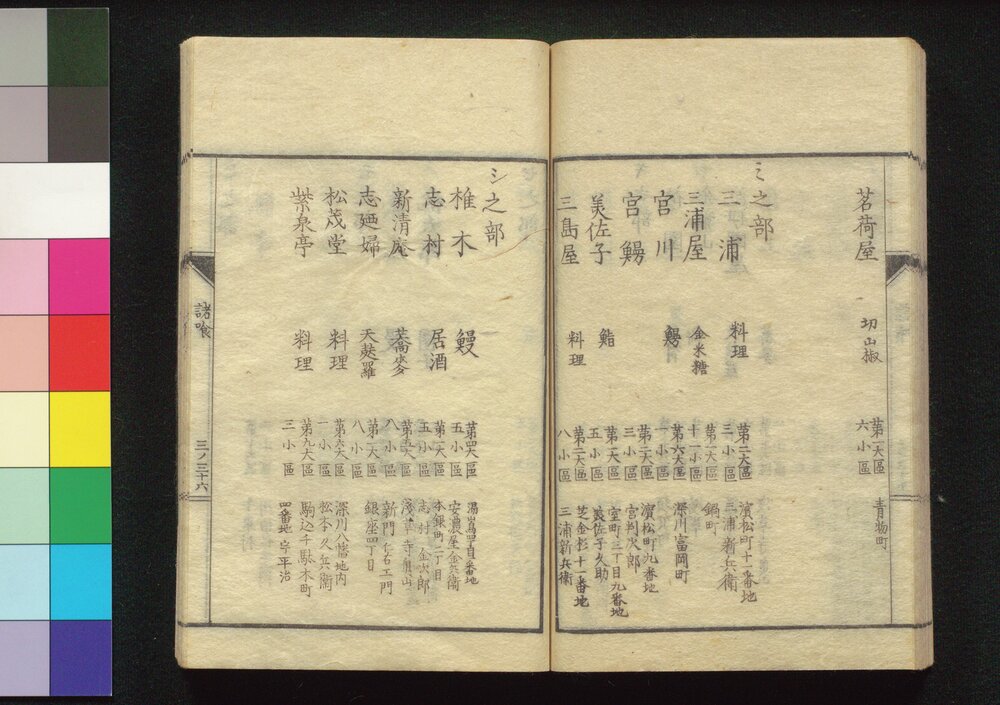 茗荷屋 切山椒 第一大區六小區 青物町
ミ之部
三浦 料理 第二大區三小區 濱松町十一番地 三浦新兵衛
三浦屋 金米糖 第一大區十一小區 鍋町
宮川 鰻 第六大區一小區 深川富岡町
宮鰻 第二大區三小區 濱松町九番地 宮判次郎
美佐子 鮨 第一大區五小區 室町三丁目九番地 美佐子久助
三島屋 料理 第二大區八小區 芝金杉十一番地 三浦新兵衛
シ之部
椎木 鰻 第四大區五小區 湯島 番地 安濃屋金兵衛
志村 居酒 第一大區五小區 本銀町二丁目 志村金次郎
新清庵 蕎麥 第五大區八小區 淺草寺
志廼婦 天麩羅 第一大區八小區 銀座四丁目 新門
松茂堂 料理 第六大區一小區 深川八幡地内 松本久兵衛
紫泉亭 料理 第九大區三小區 駒込千駄木町 四番地 宇平治
諸喰
三ノ三十六